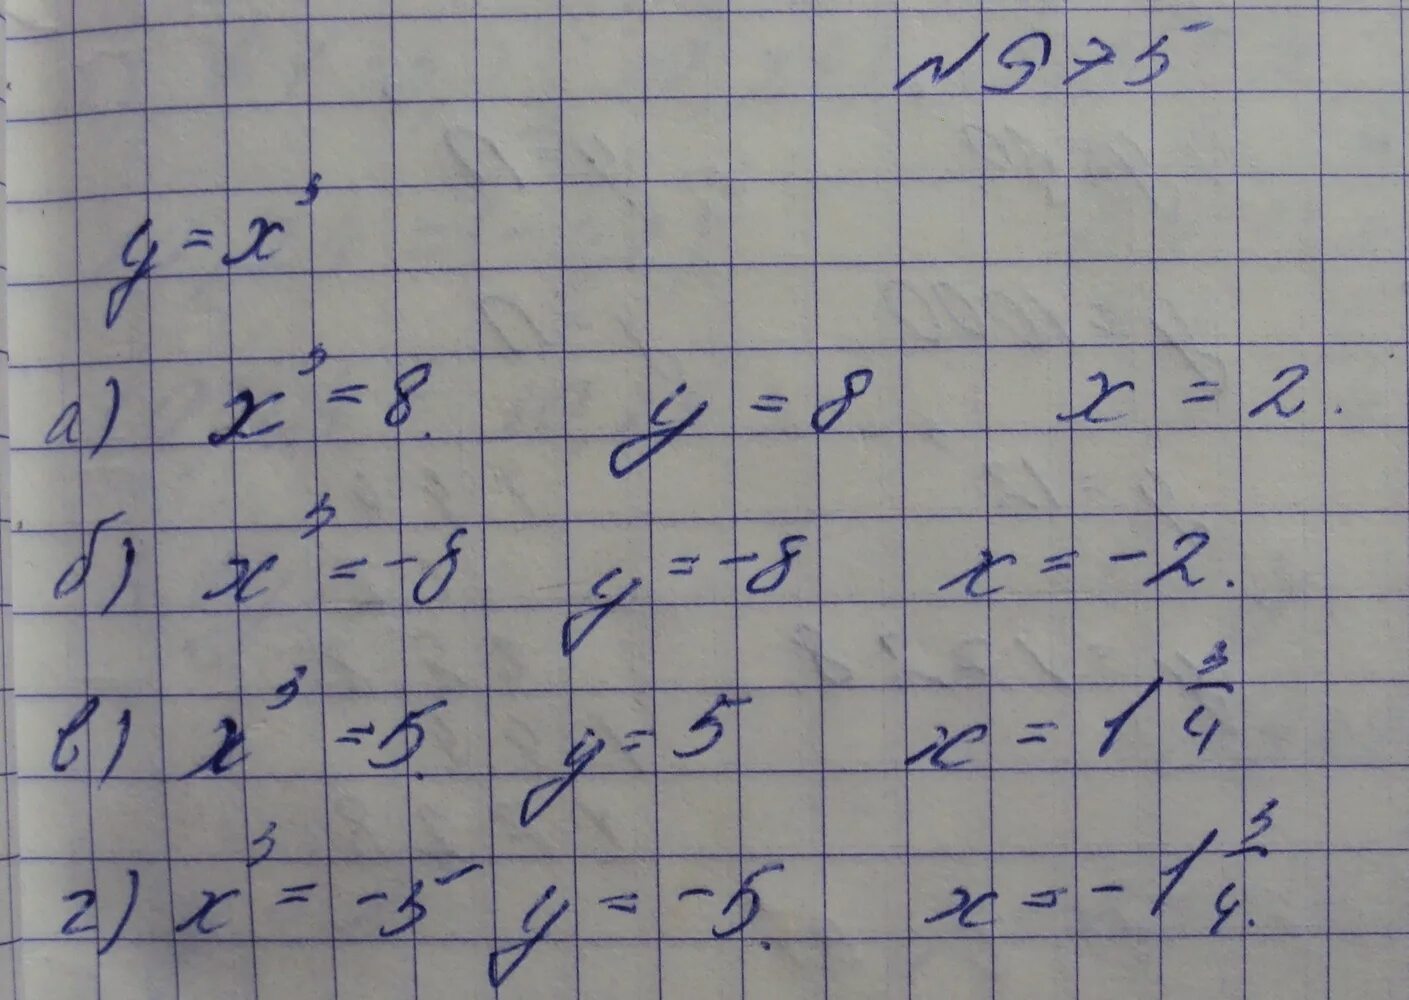 №975
y = x³
а) x³ = 8. y = 8 x = 2.
б) x³ = -8 y = -8 x = -2.
в) x³ = 5. y = 5 x = 1 3/4
г) x³ = -5 y = -5. x = -1 3/4.